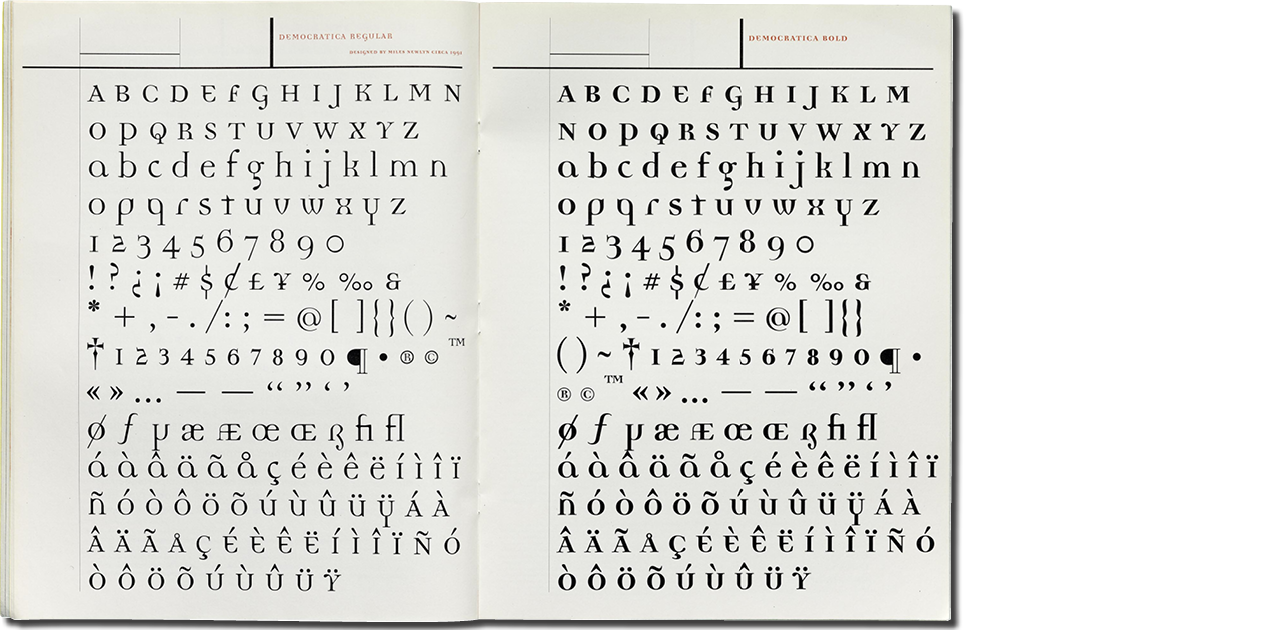 DEMOCRATICA REGULAR
DESIGNED BY MILES NEWLYN CIRCA 1991
A B C D E F G H I J K L M N
O P Q R S T U V W X Y Z
a b c d e f g h i j k l m n
o p q r s t u v w x y z
1 2 3 4 5 6 7 8 9 0
! ? ¿ ¡ # $ ₵ £ ¥ % ‰ &
* + , - . / : ; = @ [ ] { } ( ) ~
† 1 2 3 4 5 6 7 8 9 0 ¶ • ® © ™
« » … — — “ ” ‘ ’
ø ƒ µ æ Æ œ Œ ß fi fl
á à â ä ã å ç é è ê ë í ì î ï
ñ ó ò ô ö õ ú ù û ü ÿ Á À
Â Ä Ã Å Ç É È Ê Ë Í Ì Î Ï Ñ Ó
Ò Ô Ö Õ Ú Ù Û Ü Ÿ
DEMOCRATICA BOLD
A B C D E F G H I J K L M
N O P Q R S T U V W X Y Z
a b c d e f g h i j k l m n
o p q r s t u v w x y z
1 2 3 4 5 6 7 8 9 0
! ? ¿ ¡ # $ ₵ £ ¥ % ‰ &
* + , - . / : ; = @ [ ] { }
( ) ~ † 1 2 3 4 5 6 7 8 9 0 ¶ •
® © ™ « » … — — “ ” ‘ ’
ø ƒ µ æ Æ œ Œ ß fi fl
á à â ä ã å ç é è ê ë í ì î ï
ñ ó ò ô ö õ ú ù û ü ÿ Á À
Â Ä Ã Å Ç É È Ê Ë Í Ì Î Ï Ñ Ó
Ò Ô Ö Õ Ú Ù Û Ü Ÿ